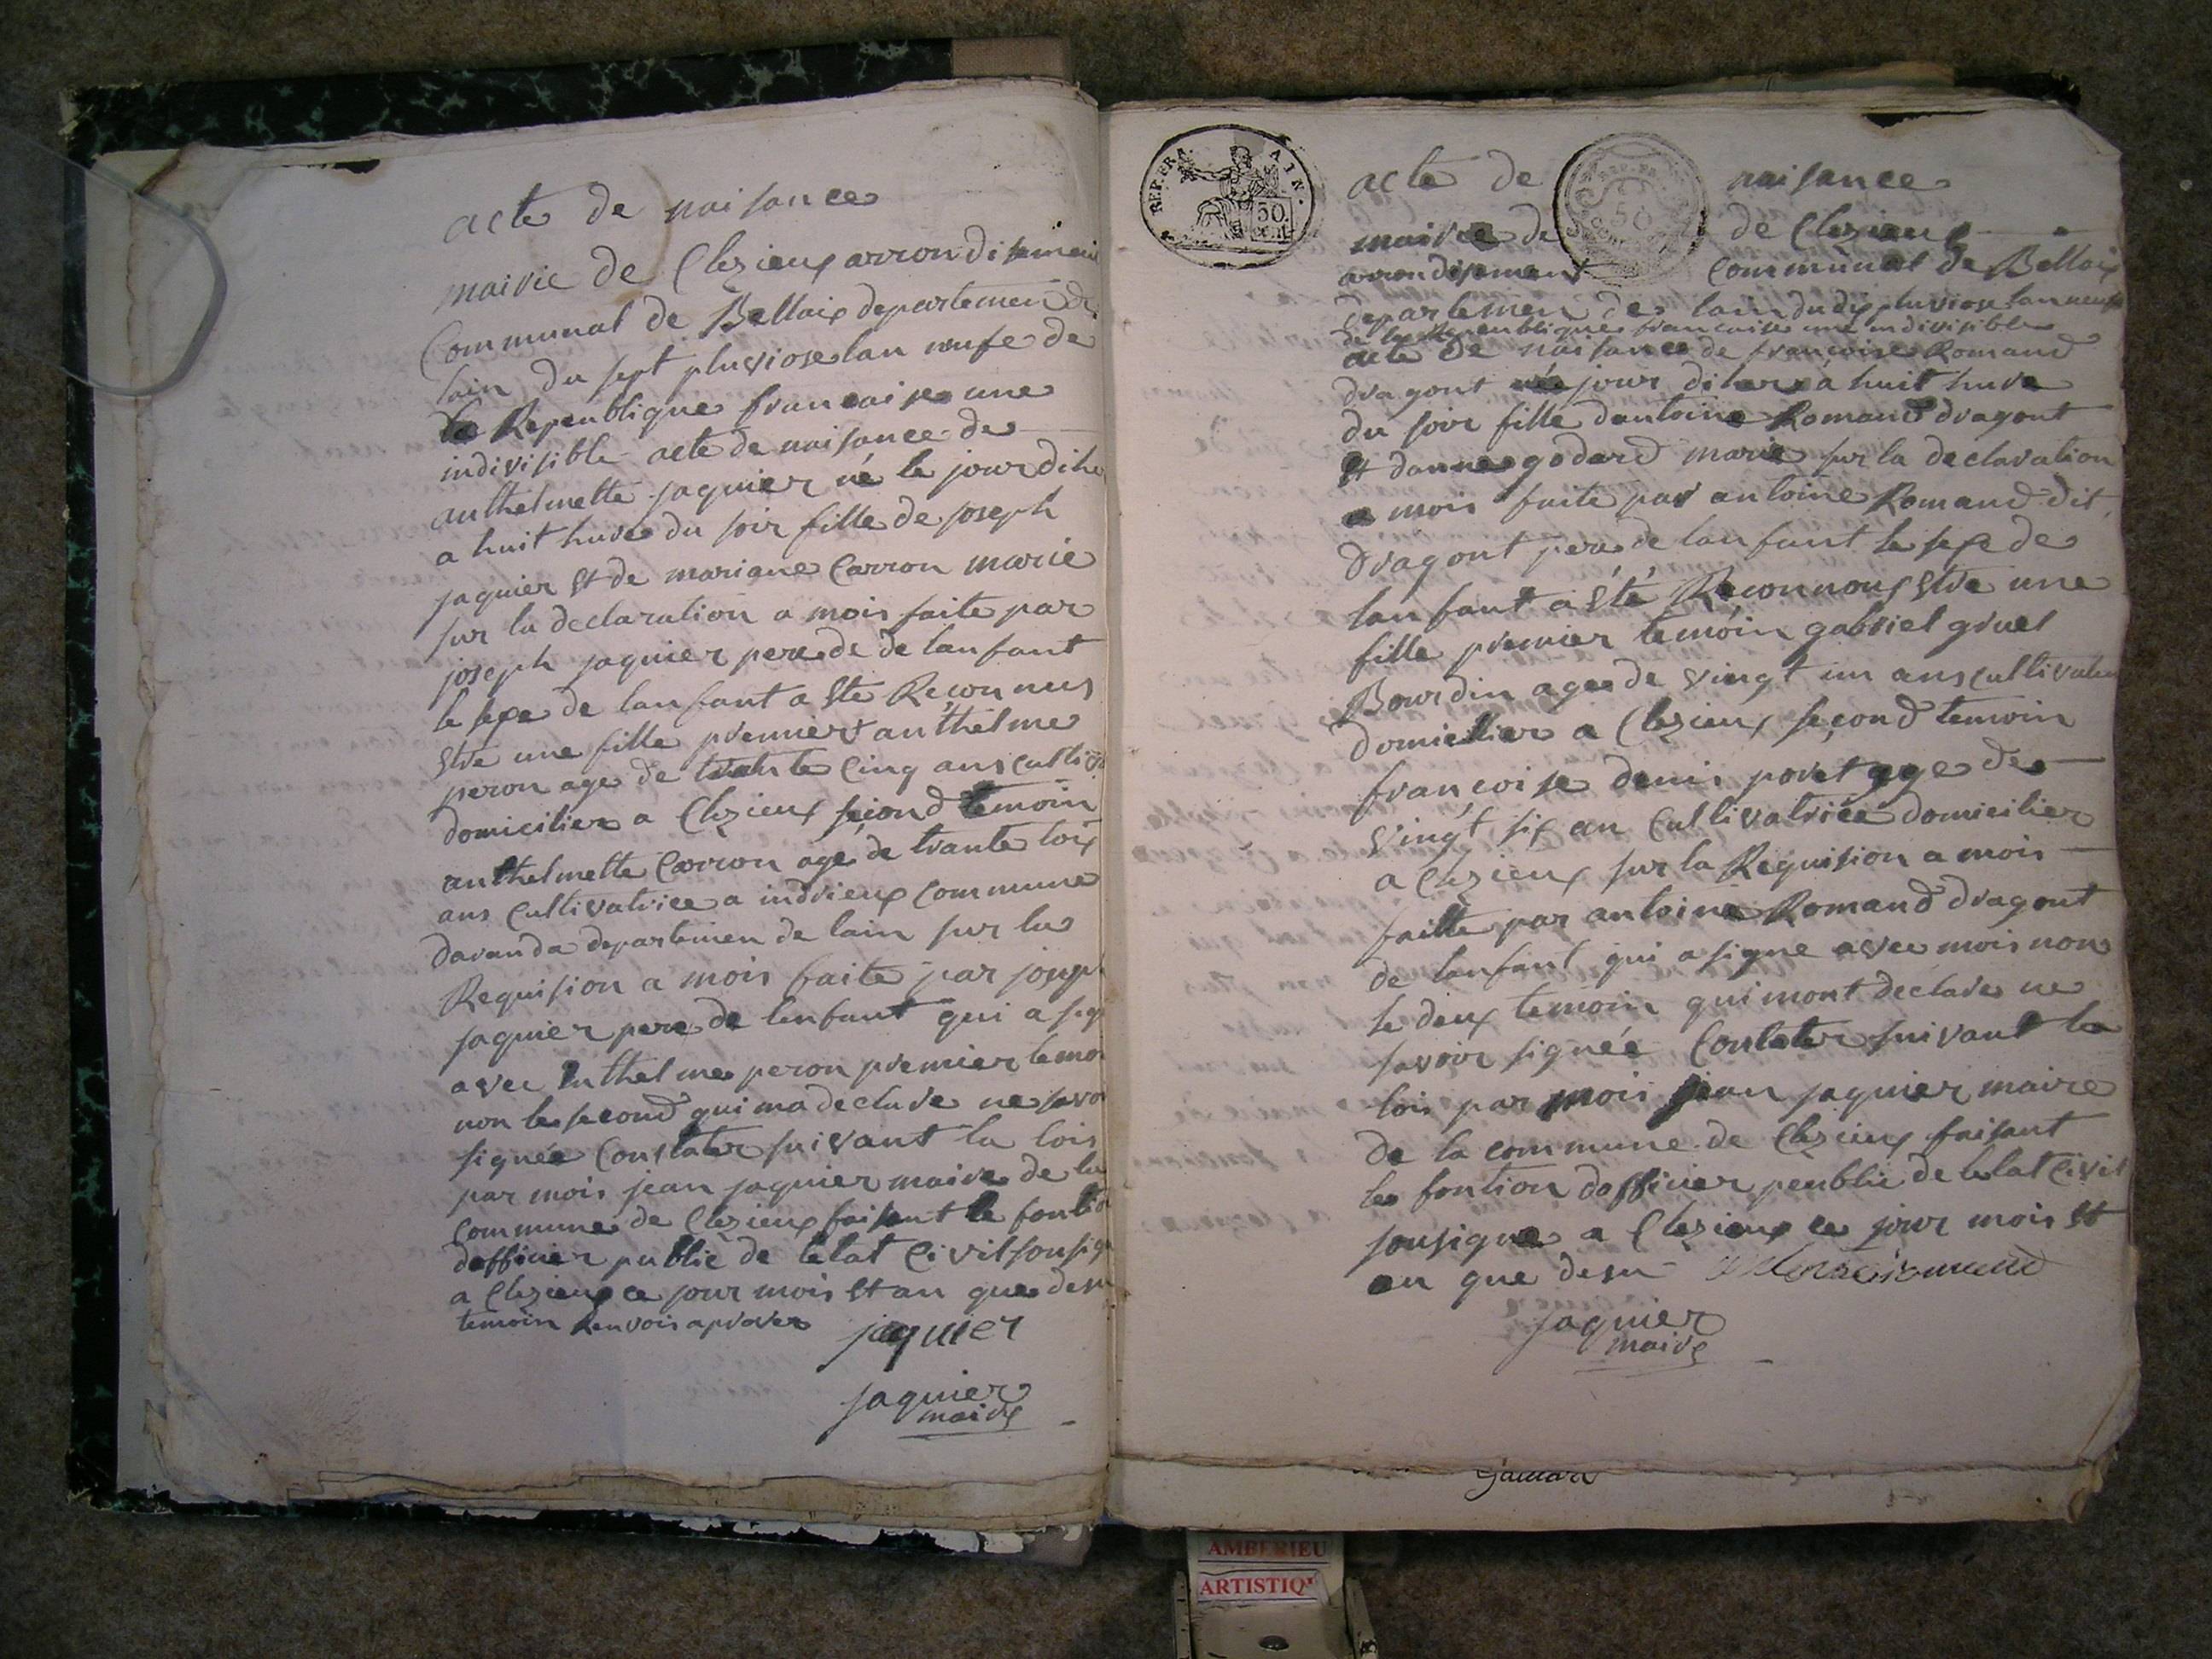 acte de naisance
mairie de Clezieux arrondisement
Communal de Bellaix departemen de
lain du sept pluviose lan neufe de
la Repeublique francaise une
indivisible acte de naisance de
anthelmette jaquier né le jour diher
a huit hures du soir fille de joseph
jaquier et de mariane Carron marié
sur la declaration a mois faite par
joseph jaquier pere de de lanfant
le sexe de lanfant a ete Reconnus
etre une fille premier anthelme
peron age de trante cinq ans culti
domicilier a Clezieux second temoin
anthelmette Carron age de trante
ans Cultivatrice a indrieux Commune
daranda departemen de lain sur la
Requision a mois faite par joseph
jaquier pere de lenfant qui a sig
avec anthelme peron premier temoi
non le second qui ma declare ne savoi
signée Constater suivant la lois
par mois jean jaquier maire de la
Commune de Clezieux faisant le fontion
dofficier public de letat Civil sousign
a Clezieux ce jour mois et an que desu
temoin Renvois aprover
jaquier
jaquier
maire
REP.FRA. AIN.
50.
cent.
acte de naisance
mairie de de Clezieux
arrondisement Communal de Bellaix
departemen de lain du dix pluviose lan neufe
de la Repeublique francaise une indivisible
acte de naisance de francoise Romand
dragont née jour diher a huit hure
du soir fille dantoine Romand dragont
et danne godard marie sur la declaration
a mois faite par antoine Romand dit
dragont pere de lanfant le sexe de
lanfant a été Reconnous etre une
fille premier temoin gabriel gruel
Bourdin age de vingt un ans cultivateu
domicilier a Clezieux second temoin
francoise denis poret age de
vingt six an Cultivatrice domicilier
a Clezieux sur la Requision a mois
faitte par antoine Romand dragont
de lanfant qui a signe avec mois non
le deux temoin qui mont declare ne
savoir signée Constater suivant la
lois par mois jean jaquier maire
de la commune de Clezieux faisant
le fontion dofficier peublic de letat Civil
sousigne a Clezieux ce jour mois et
an que desu
jaquier
maire
AMBERIEU
ARTISTIQ